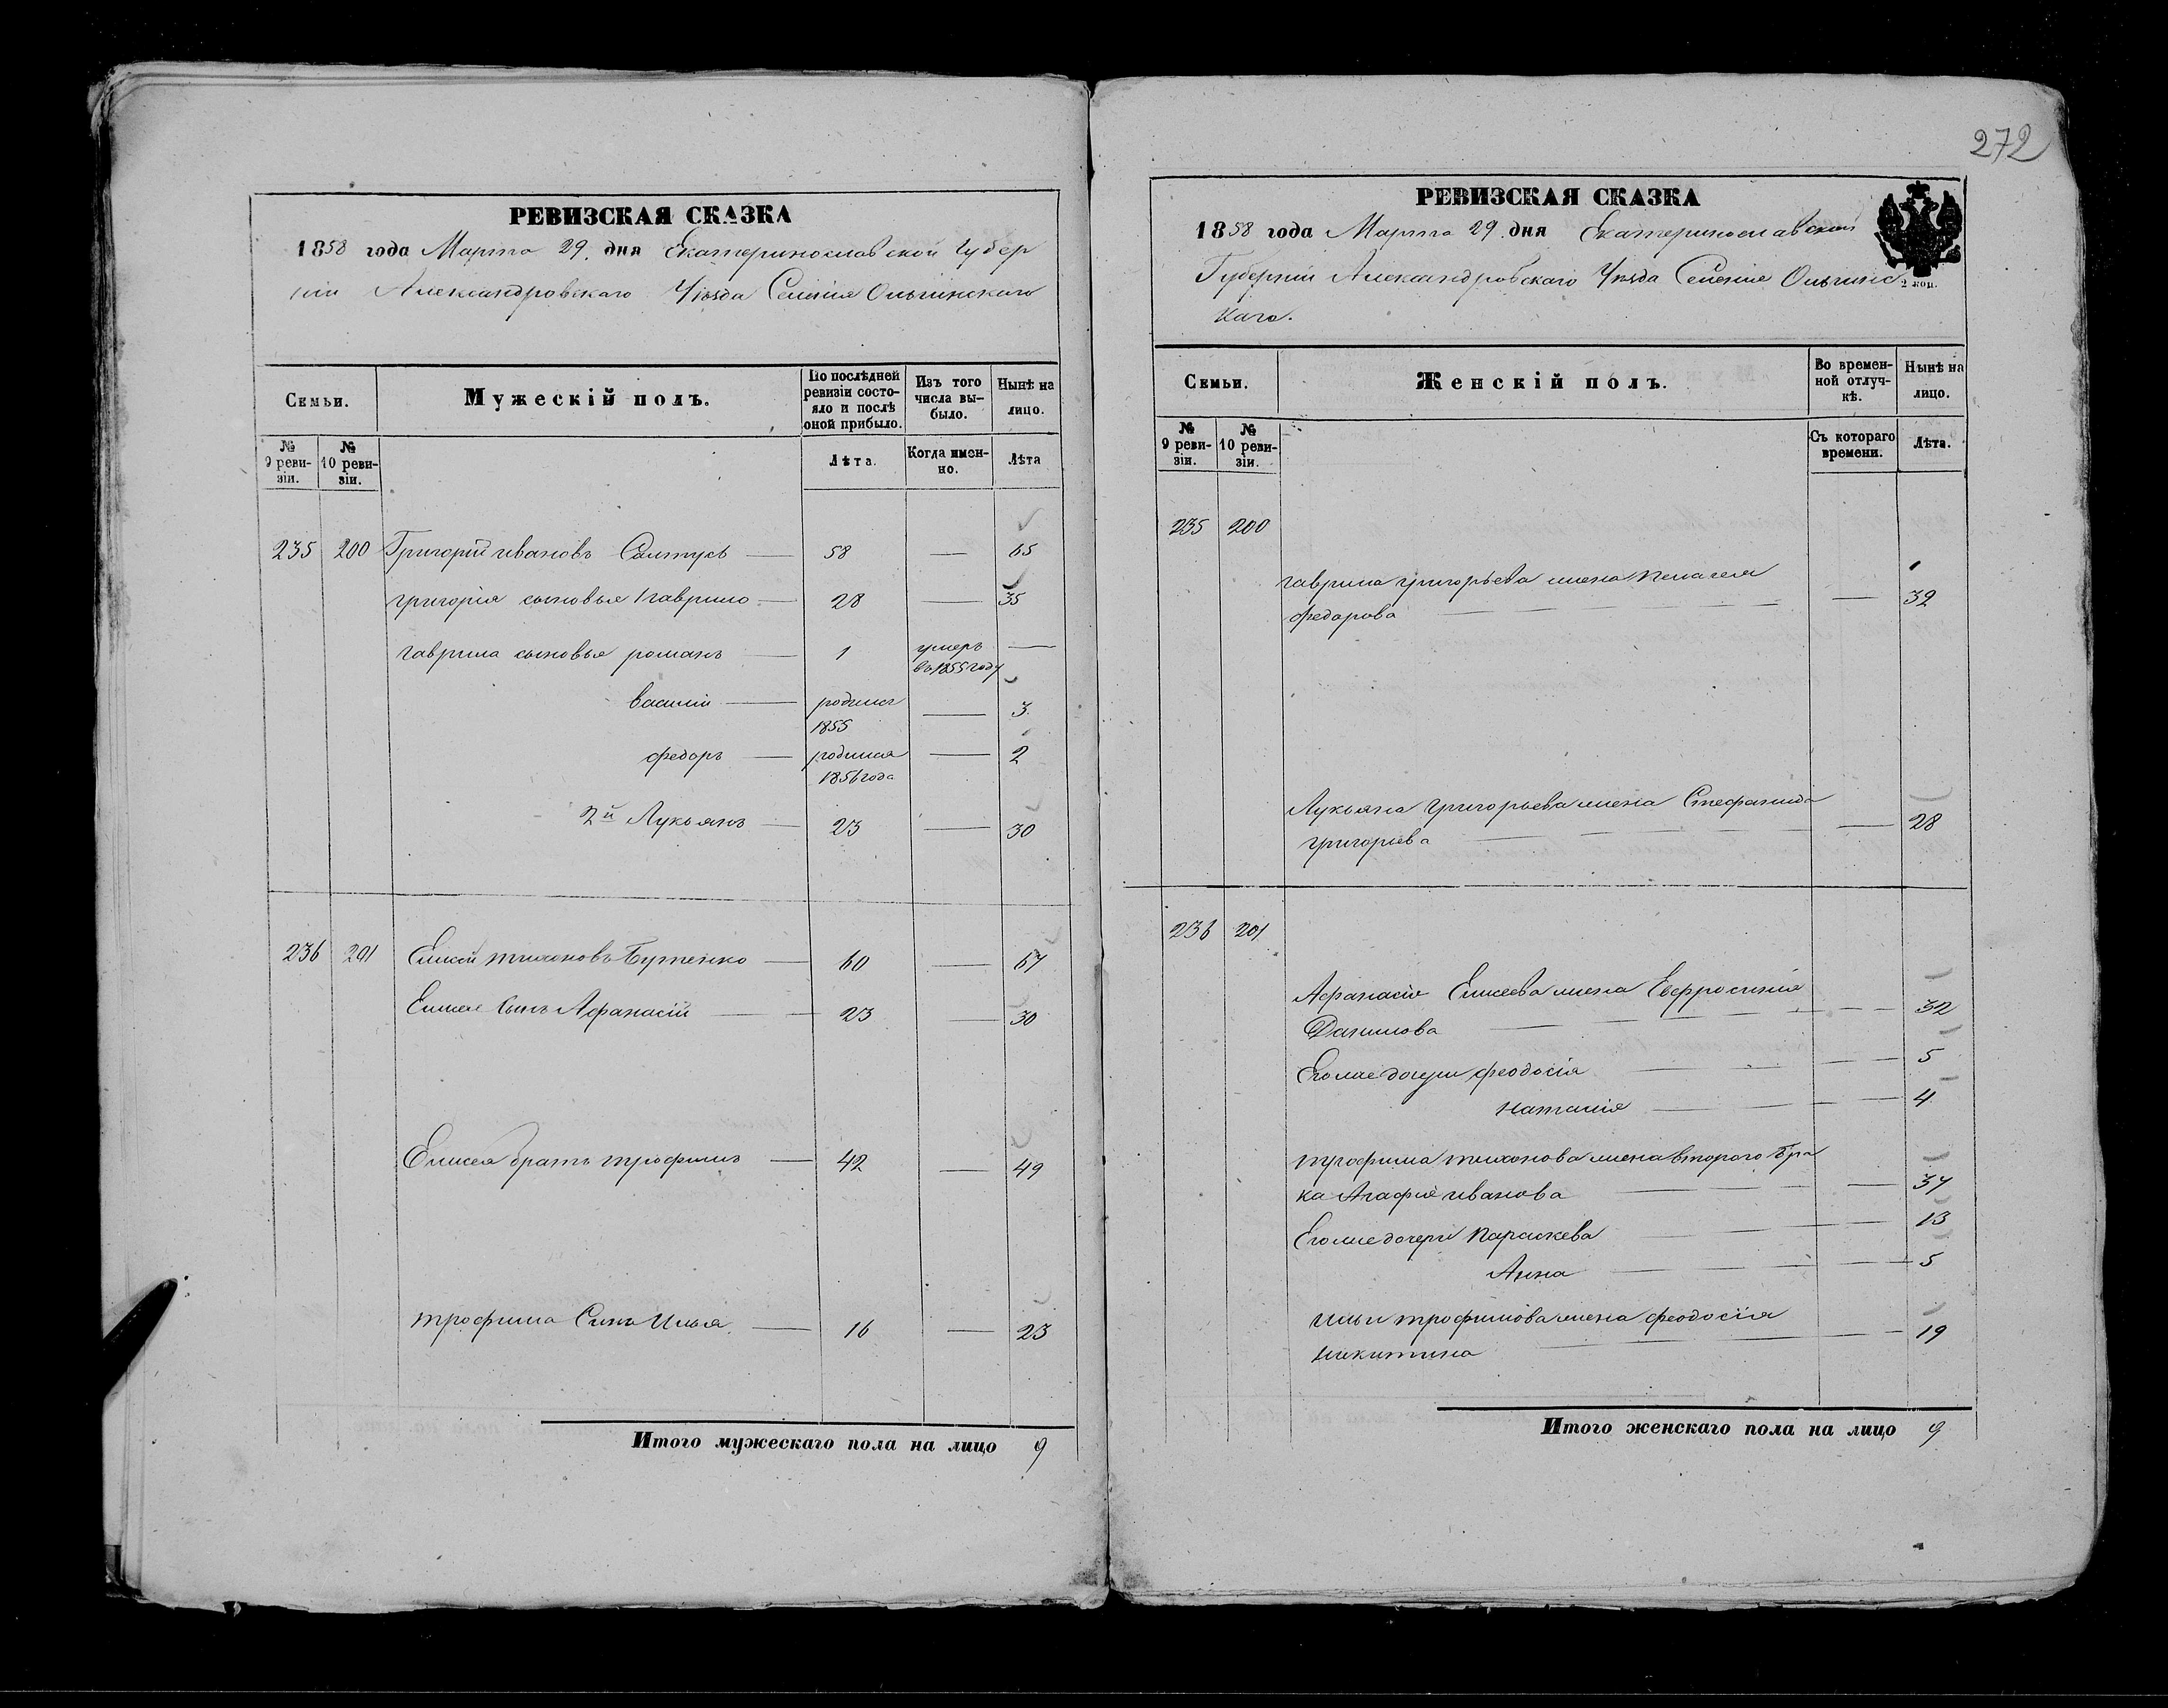 272
РЕВИЗСКАЯ СКАЗКА
1858 года Марта 29. дня Екатеринославской Губер
ніи Александровскаго Уѣзда Селенія Ольгинскаго
Семьи.
Мужескій полъ.
По послѣдней ревизіи состояло и послѣ оной прибыло.
Изъ того числа выбыло.
Нынѣ на лицо.
№ 9 ревизіи.
№ 10 ревизіи.
Лѣта.
Когда именно.
Лѣта
235 200 Григорій ивановъ 58 — 65
григорія сыновья 1 гаврило — 28 — 35
гаврила сыновья романъ — 1 умеръ —
въ 1855 году
василій — родился — 3
1855
федоръ — родился — 2
1856 года
2й Лукьянъ — 23 — 30
236 201 Елисей тихоновъ Бутенко — 60 — 67
Елисея сынъ Афанасій — 23 — 30
Елисея братъ трофимъ — 42 — 49
трофима Сынъ Илья — 16 — 23
Итого мужескаго пола на лицо 9
РЕВИЗСКАЯ СКАЗКА
1858 года Марта 29. дня Екатеринославской
Губерніи Александровскаго Уѣзда Селенія Ольгинс
каго.
2 коп.
Семьи.
Женскій полъ.
Во временной отлучкѣ.
Нынѣ на лицо.
№ 9 ревизіи.
№ 10 ревизіи.
Съ котораго времени.
Лѣта.
235 200
гаврила григорьева жена пелагея
федорова — 32
Лукьяна григорьева жена Стефанида
григорьева — 28
236 201
Афанасія Елисеева жена Евфросинія
Данилова — 32
Егоже дочери феодосія — 5
наталія — 4
трофима тихонова жена втораго бра
ка Агафія иванова — 37
Егоже дочери параскева — 13
Анна — 5
ильи трофимова жена феодосія
никитина — 19
Итого женскаго пола на лицо 9